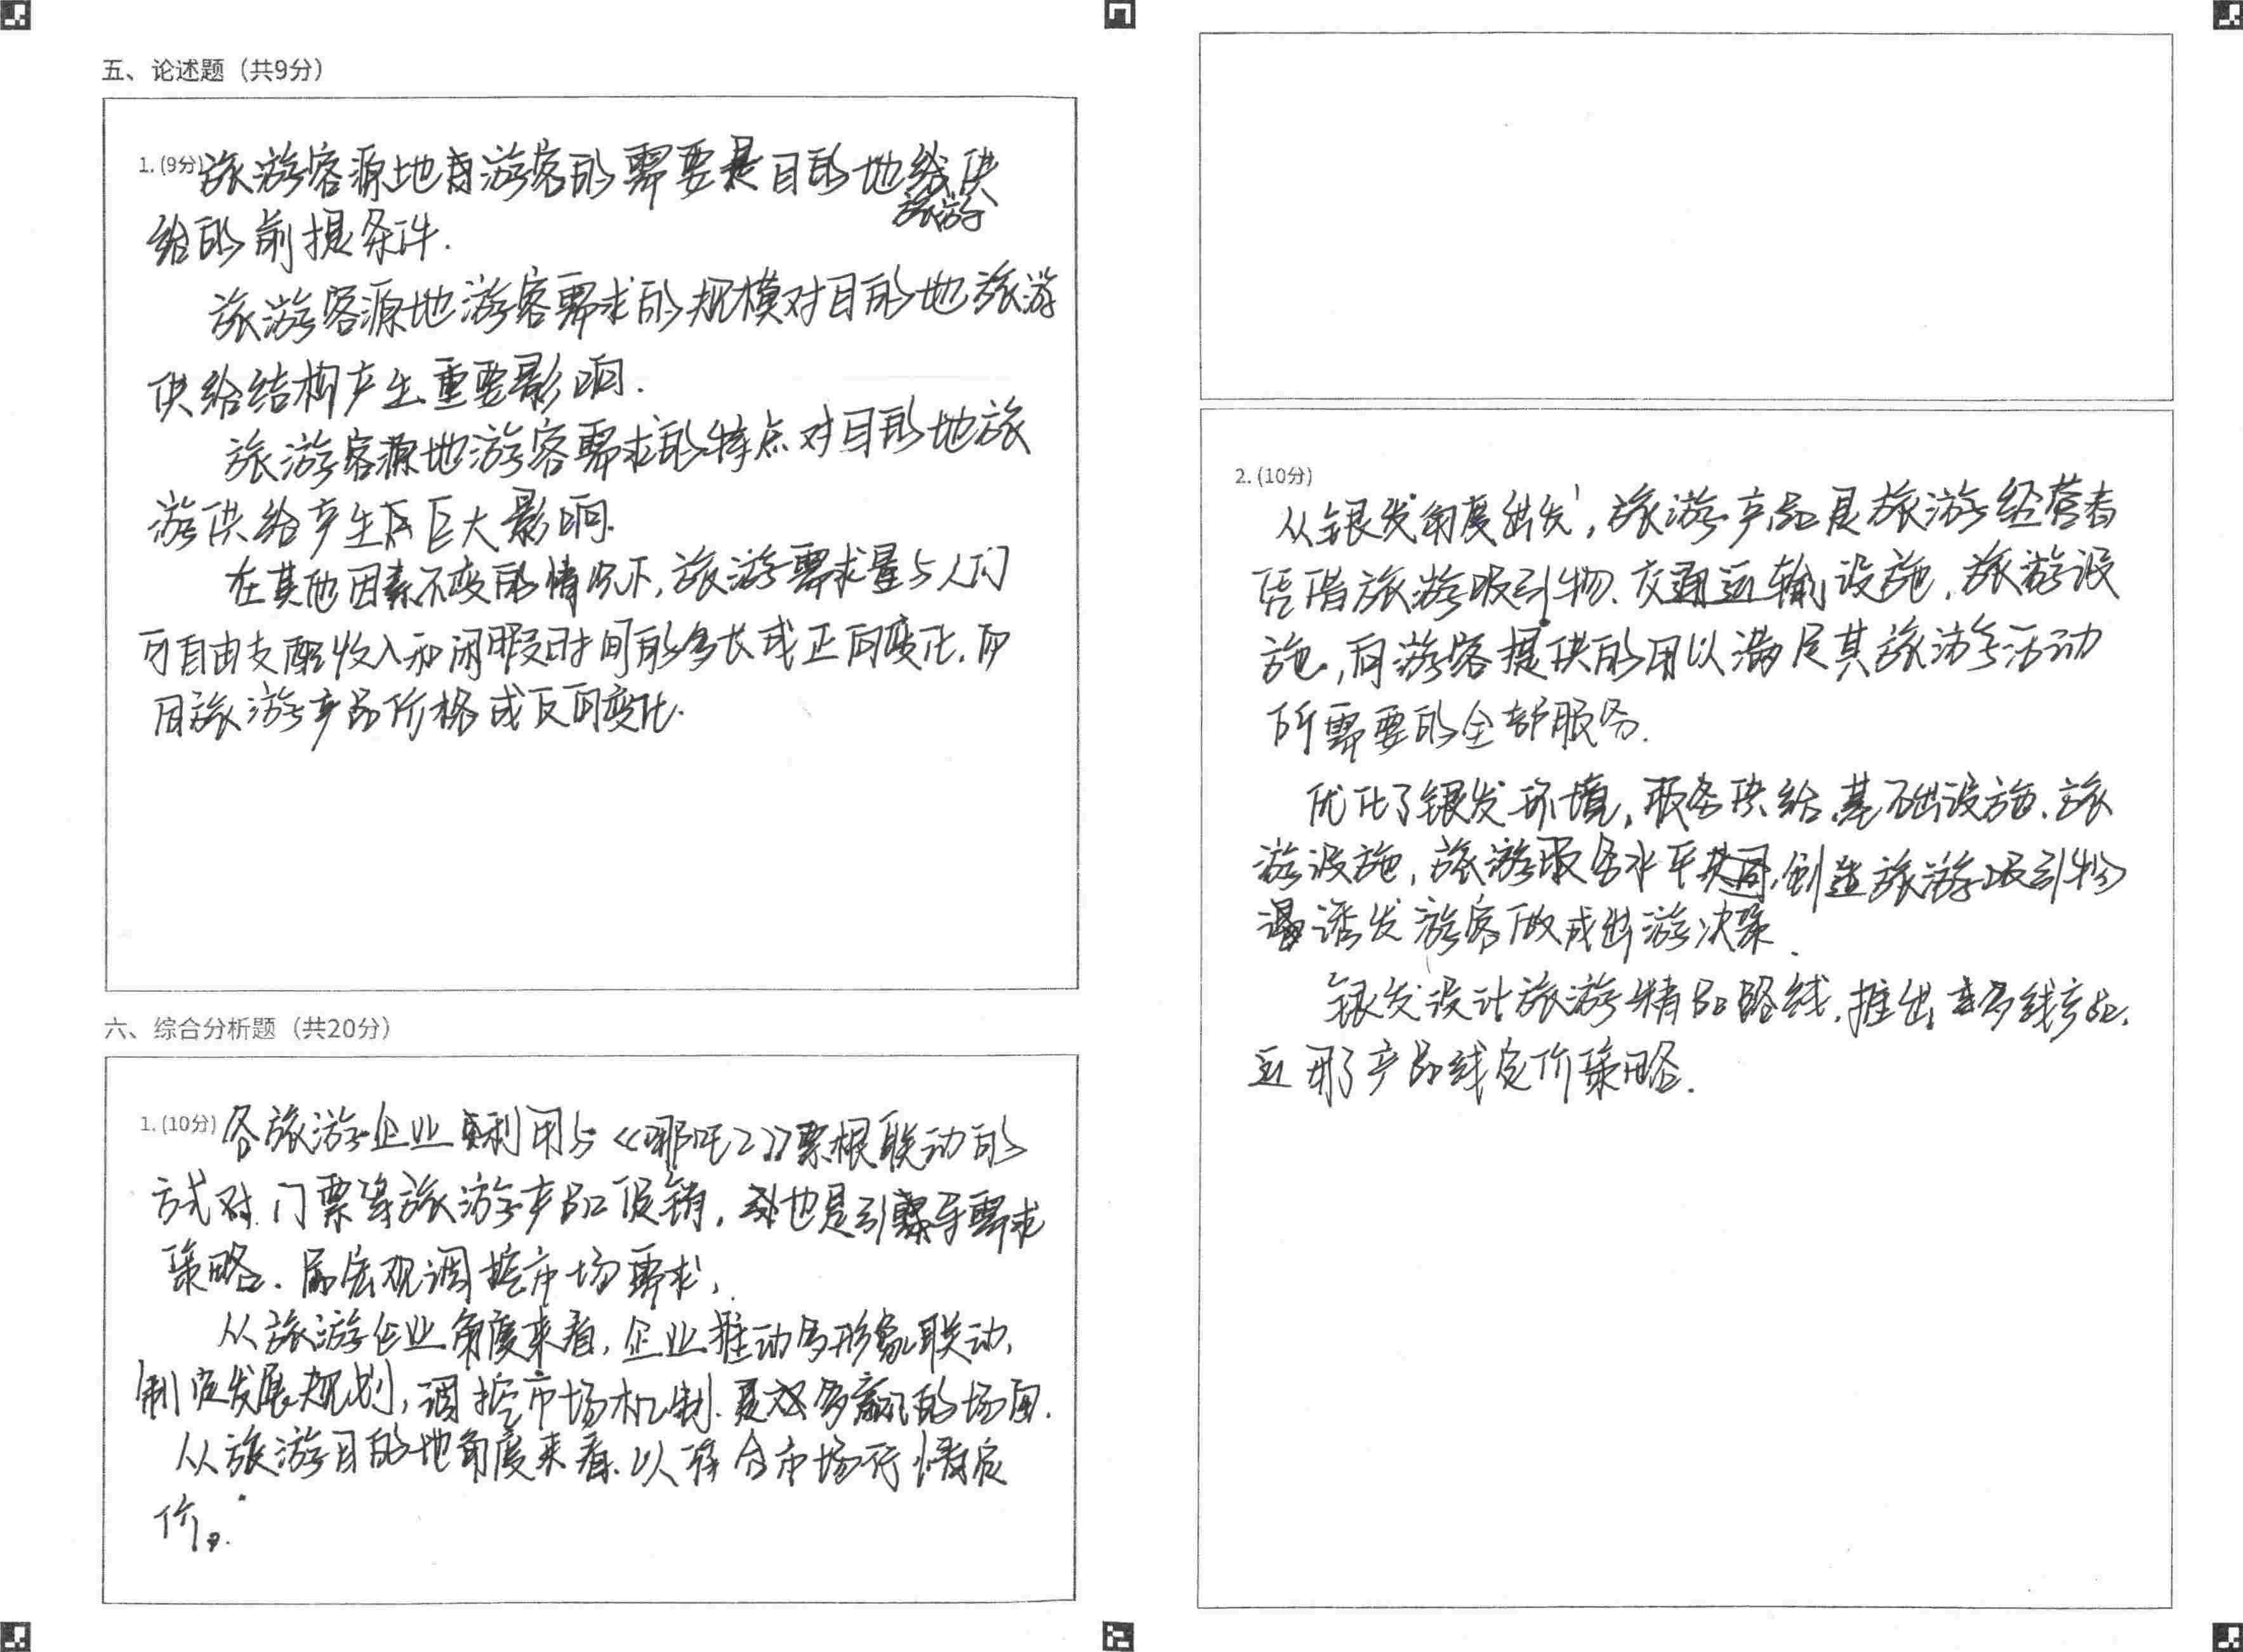 五、论述题（共9分）
1.(9分)旅游客源地游客的需要是目的地旅游供
给的前提条件.
旅游客源地游客需求的规模对目的地旅游
供给结构产生重要影响.
旅游客源地游客需求的特点对目的地旅
游供给产生巨大影响.
在其他因素不变的情况下,旅游需求量与人们
可自由支配收入和闲暇时间的多长成正向变化,而
同旅游产品价格成反向变化.
六、综合分析题（共20分）
1.(10分)各旅游企业利用与《哪吒2》票根联动的
方式对门票等旅游产品促销,也是引导需求
策略.属宏观调控市场需求,
从旅游企业角度来看,企业推动多形象联动,
制定发展规划,调控市场机制.是多赢的场面.
从旅游目的地角度来看.以符合市场行情定
价.
2.(10分)
从银发角度出发,旅游产品是旅游经营者
凭借旅游吸引物、交通运输设施,旅游设
施,向游客提供的用以满足其旅游活动
所需要的全部服务.
优化了银发环境,服务供给,基础设施、旅
游设施,旅游服务水平共同,创造旅游吸引物
诱发游客做成出游决策.
银发设计旅游精品路线,推出多线产品,
运用了产品线定价策略.